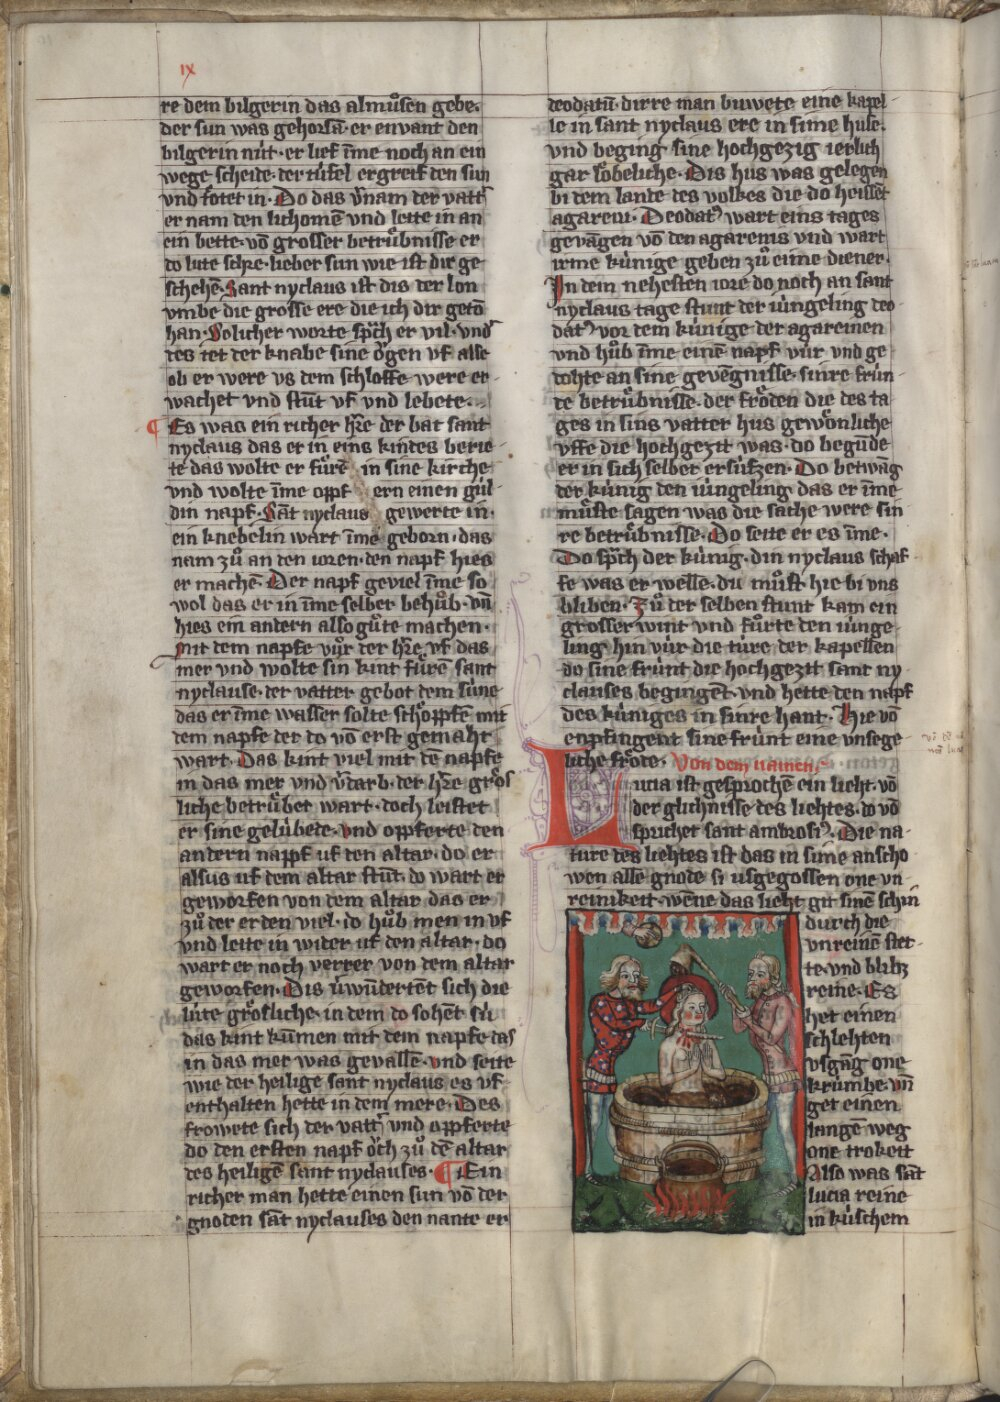 ıx
re dem bilgerin das almůsen gebe.
der sun was gehorsā· er envant den
bilgerin nút· er lief īme noch an ein
wege scheide· der túfel ergreif den sun
vnd totet in· Do das v̄nam der vattʼ
er nam den lichomē vnd leite in an
ein bette· vō grosser betrůbnisse er
do lute schre· lieber sun wie ist dir ge
schehē· Sant nyclaus ist dis der lon
vmbe die grosse ere die ich dir getō
han· Solicher worte sp̄ch er vil· vnd
des tet der knabe sine ǒgen vf alse
ob er were vs dem schloffe were er-
wachet vnd stūt vf vnd lebete·
¶ Es was ein richer hr̄re der bat sant
nyclaus das er in eins kindes berie-
te das wolte er fůrē in sine kirche
vnd wolte īme oppfern einen gúl
din napf· Sāt nyclaus gewerte in·
ein knebelin wart īme geborn· das
nam zů an den ioren· den napf hies
er machē· Der napf geviel īme so
wol das er in īme selber behůb· vn̄
hies ein andern also gůte machen·
Mit dem napfe vůr der hr̄re vf das
mer vnd wolte sin kint fůrē sant
nyclause· der vatter gebot dem súne
das er īme wasser solte schǒppfē mit
dem napfe der do vō erst gemaht
wart· Das kint viel mit dē napfe
in das mer vnd v̄darb· der hr̄re grǒs
liche betrůbet wart· doch leistet
er sine gelúbede· vnd oppferte den
andern nappf uf den altar· do er
alsus uf dem altar stūt· do wart er
geworfen von dem altar das er
zů der erden viel· do hůb men in vf
vnd leite in wider uf den altar· do
wart er noch verrer von dem altar
geworfen· Dis v̄wūdertēt sich die
lúte grǒsliche· in dem do sohēt sú
das kint kūmen mit dem napfe das
in das mer was gevallē· vnd seite
wie der heilige sant nyclaus es vf-
enthalten hette in dem mere· Des
frowete sich der vattʼ vnd oppferte
do den ersten napf ǒch zů dē altar
des heiligē sant nyclauses· ¶ Ein
richer man hette einen sun vō der
gnoden sāt nyclauses den nante er
deodatū· dirre man buwete eine kapel-
le in sant nyclaus ere in sime huse·
vnd beging sine hochgezig ierlich
gar lǒbeliche· Dis hus was gelegen
bi dem lande des volkes die do heissēt
agareni· Deodatʼ wart eins tages
gevāgen vō den agarenis vnd wart
irme kúnige geben zů eime diener·
In dem nehesten iore do noch an sant
nyclaus tage stunt der iúngeling deo
datʼ vor dem kúnige der agareinen
vnd hůb īme einē napf vúr vnd ge
dohte an sine gevēgnisse· sinre frún-
de betrůbnisse· der frǒden die des ta
ges in sins vatter hus gewǒnliche
vffe die hochgezit was· do begūde
er in sich selber ersúfzen· Do betwāg
der kúnig den iúngeling das er īme
můste sagen was die sache were sin
re betrůbnisse· Do seite er es īme·
Do sp̄ch der kúnig· din nyclaus schaf-
fe was er welle· du můst hie bi vns
bliben· Zů der selben stunt kam ein
grosser wint vnd fůrte den iúnge-
ling hin vúr die túre der kapellen
do sine frúnt die hochgezit sant ny
clauses begingēt· vnd hette den napf
des kúniges in sinre hant· Hie vō
enpfingent sine frúnt eine vnsege
liche frǒde· Von dem namen·
Lucia ist gesprochē ein lieht· vō
der glichnisse des liehtes· do vō
sprichet sant ambrosiʼ· Die na-
ture des liehtes ist das in sime anscho
wen alle gnode si usgegossen one vn-
reinikeit· wēne das lieht git sinē schin
durch die
vnreinē stet-
te· vnd blibz
reine· Es
het einen
schlehten
vsgāg one
krúmbe· vn̄
get einen
langē weg
one trokeit
Also was sāt
lucia reine
in kúschem